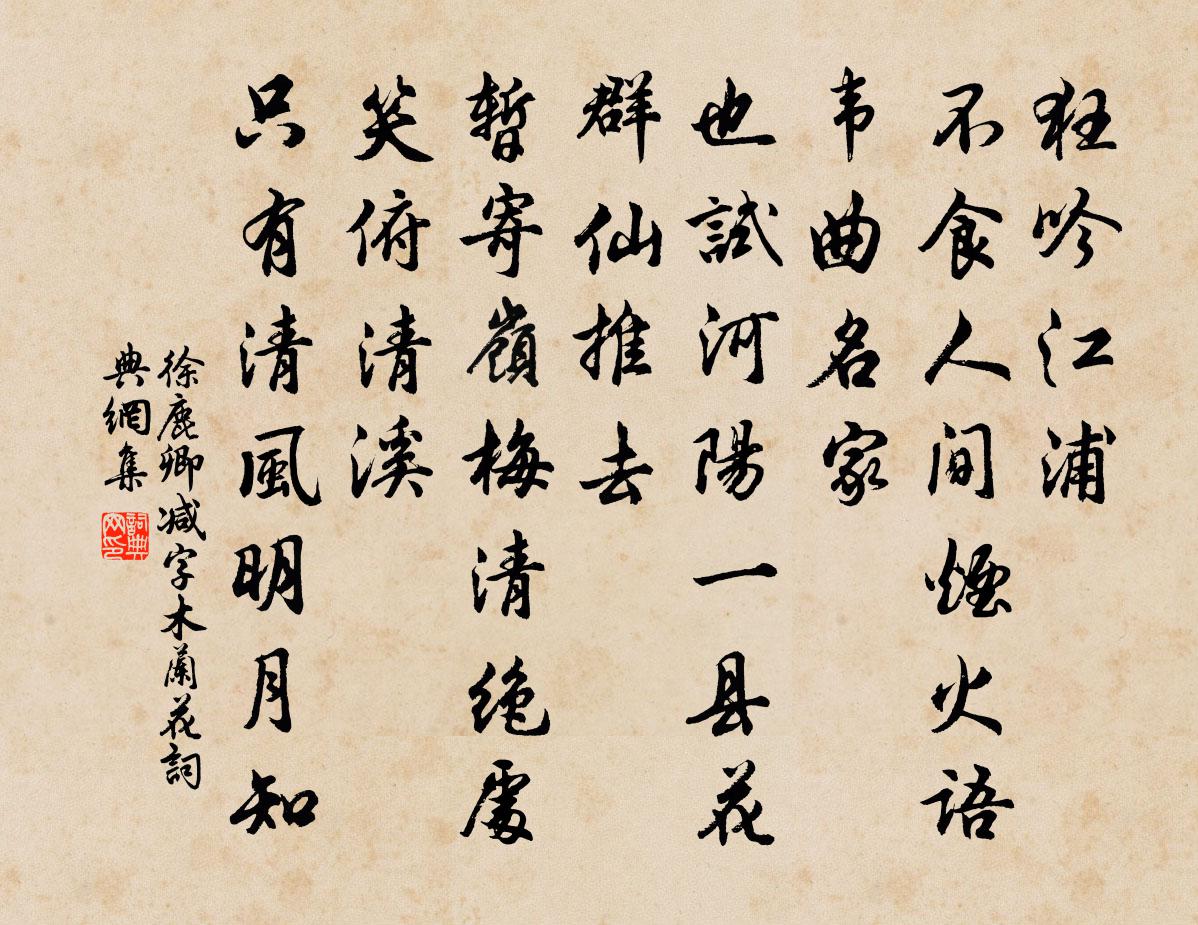 狂吟江浦
不食人间煙火语
韦曲名家
也試河陽一县花
群仙推去
暫寄嶺梅清绝處
笑俯清溪
只有清風明月知
徐鹿卿减字木蘭花詞
典網集
詞典網印